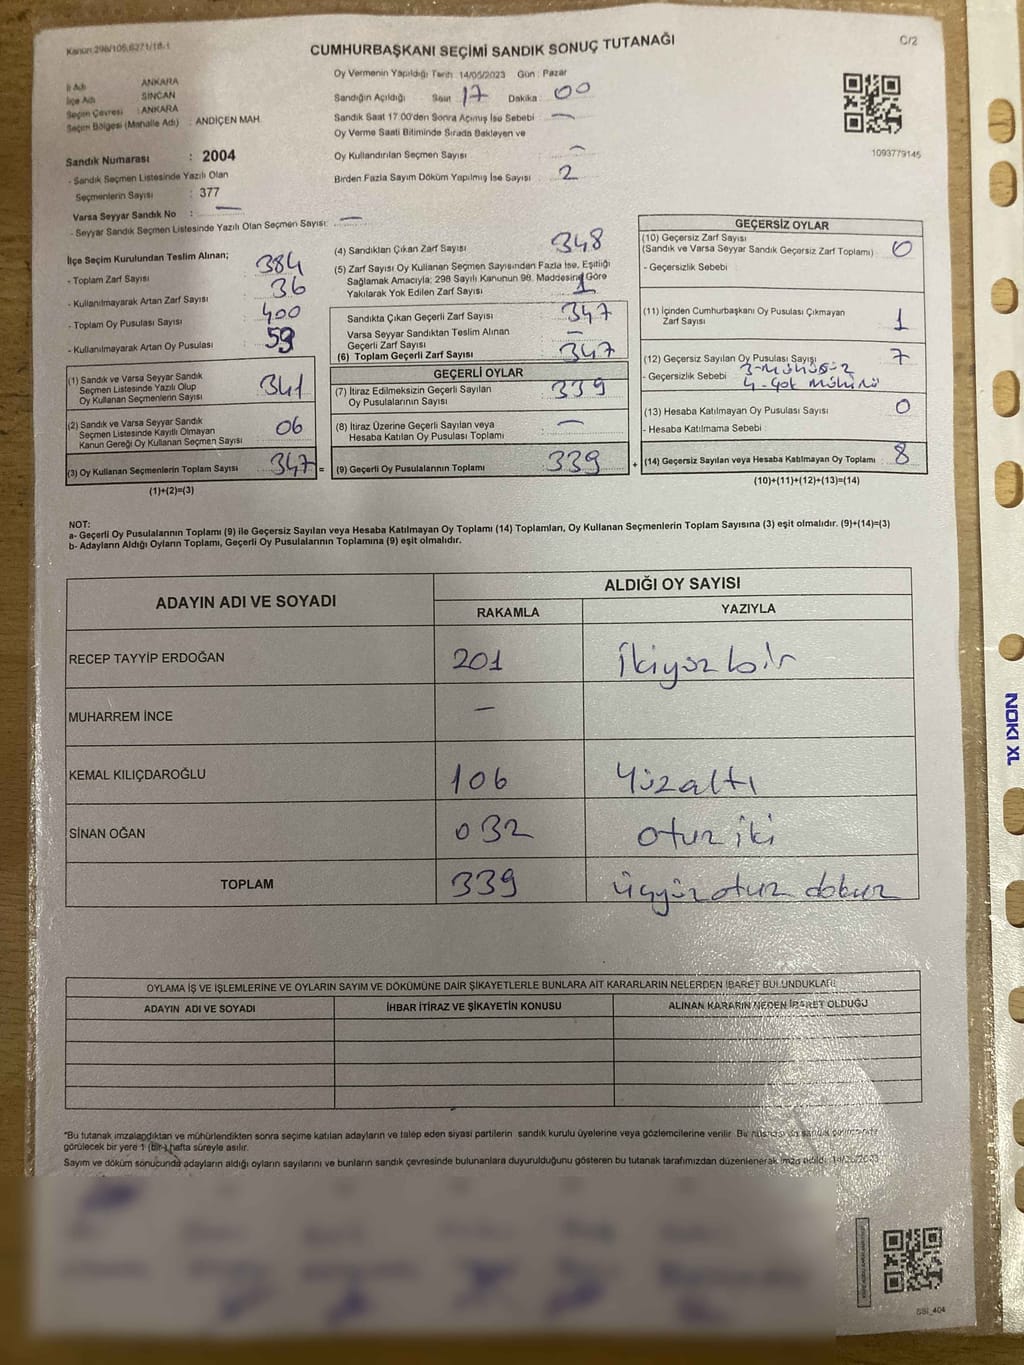 Kanun:298/105,6271/18-1
CUMHURBAŞKANI SEÇİMİ SANDIK SONUÇ TUTANAĞI
C/2
İl Adı : ANKARA
İlçe Adı : SİNCAN
Seçim Çevresi : ANKARA
Seçim Bölgesi (Mahalle Adı) : ANDİÇEN MAH.
Sandık Numarası : 2004
- Sandık Seçmen Listesinde Yazılı Olan
Seçmenlerin Sayısı : 377
Varsa Seyyar Sandık No : —
- Seyyar Sandık Seçmen Listesinde Yazılı Olan Seçmen Sayısı: —
Oy Vermenin Yapıldığı Tarih : 14/05/2023 Gün : Pazar
Sandığın Açıldığı Saat : 17 Dakika : 00
Sandık Saat 17.00'den Sonra Açılmış İse Sebebi : —
Oy Verme Saati Bitiminde Sırada Bekleyen ve
Oy Kullandırılan Seçmen Sayısı : —
Birden Fazla Sayım Döküm Yapılmış İse Sayısı : 2
1093779145
İlçe Seçim Kurulundan Teslim Alınan;
- Toplam Zarf Sayısı : 384
- Kullanılmayarak Artan Zarf Sayısı : 36
- Toplam Oy Pusulası Sayısı : 400
- Kullanılmayarak Artan Oy Pusulası : 59
(1) Sandık ve Varsa Seyyar Sandık
Seçmen Listesinde Yazılı Olup
Oy Kullanan Seçmenlerin Sayısı : 341
(2) Sandık ve Varsa Seyyar Sandık
Seçmen Listesinde Kayıtlı Olmayan
Kanun Gereği Oy Kullanan Seçmen Sayısı : 06
(3) Oy Kullanan Seçmenlerin Toplam Sayısı : 347 =
(1)+(2)=(3)
(4) Sandıktan Çıkan Zarf Sayısı : 348
(5) Zarf Sayısı Oy Kullanan Seçmen Sayısından Fazla İse, Eşitliği
Sağlamak Amacıyla; 298 Sayılı Kanunun 98. Maddesine Göre
Yakılarak Yok Edilen Zarf Sayısı : 1
Sandıkta Çıkan Geçerli Zarf Sayısı : 347
Varsa Seyyar Sandıktan Teslim Alınan
Geçerli Zarf Sayısı : —
(6) Toplam Geçerli Zarf Sayısı : 347
GEÇERLİ OYLAR
(7) İtiraz Edilmeksizin Geçerli Sayılan
Oy Pusulalarının Sayısı : 339
(8) İtiraz Üzerine Geçerli Sayılan veya
Hesaba Katılan Oy Pusulası Toplamı : —
(9) Geçerli Oy Pusulalarının Toplamı : 339 +
GEÇERSİZ OYLAR
(10) Geçersiz Zarf Sayısı
(Sandık ve Varsa Seyyar Sandık Geçersiz Zarf Toplamı) : 0
- Geçersizlik Sebebi :
(11) İçinden Cumhurbaşkanı Oy Pusulası Çıkmayan
Zarf Sayısı : 1
(12) Geçersiz Sayılan Oy Pusulası Sayısı : 7
- Geçersizlik Sebebi : 3-mühürsüz
4-çok mühürlü
(13) Hesaba Katılmayan Oy Pusulası Sayısı : 0
- Hesaba Katılmama Sebebi :
(14) Geçersiz Sayılan veya Hesaba Katılmayan Oy Toplamı : 8
(10)+(11)+(12)+(13)=(14)
NOT:
a- Geçerli Oy Pusulalarının Toplamı (9) ile Geçersiz Sayılan veya Hesaba Katılmayan Oy Toplamı (14) Toplamları, Oy Kullanan Seçmenlerin Toplam Sayısına (3) eşit olmalıdır. (9)+(14)=(3)
b- Adayların Aldığı Oyların Toplamı, Geçerli Oy Pusulalarının Toplamına (9) eşit olmalıdır.
ADAYIN ADI VE SOYADI
ALDIĞI OY SAYISI
RAKAMLA YAZIYLA
RECEP TAYYİP ERDOĞAN 201 İkiyüz bir
MUHARREM İNCE —
KEMAL KILIÇDAROĞLU 106 Yüzaltı
SİNAN OĞAN 032 otuz iki
TOPLAM 339 üçyüz otuz dokuz
OYLAMA İŞ VE İŞLEMLERİNE VE OYLARIN SAYIM VE DÖKÜMÜNE DAİR ŞİKAYETLERLE BUNLARA AİT KARARLARIN NELERDEN İBARET BULUNDUKLARI
ADAYIN ADI VE SOYADI İHBAR İTİRAZ VE ŞİKAYETİN KONUSU ALINAN KARARIN NEDEN İBARET OLDUĞU
*Bu tutanak imzalandıktan ve mühürlendikten sonra seçime katılan adayların ve talep eden siyasi partilerin sandık kurulu üyelerine veya gözlemcilerine verilir. Bir
görülecek bir yere 1 (bir) hafta süreyle asılır.
Sayım ve döküm sonucunda adayların aldığı oyların sayılarını ve bunların sandık çevresinde bulunanlara duyurulduğunu gösteren bu tutanak tarafımızdan düzenlenerek imza edildi.
SSI_404
NOKI XL